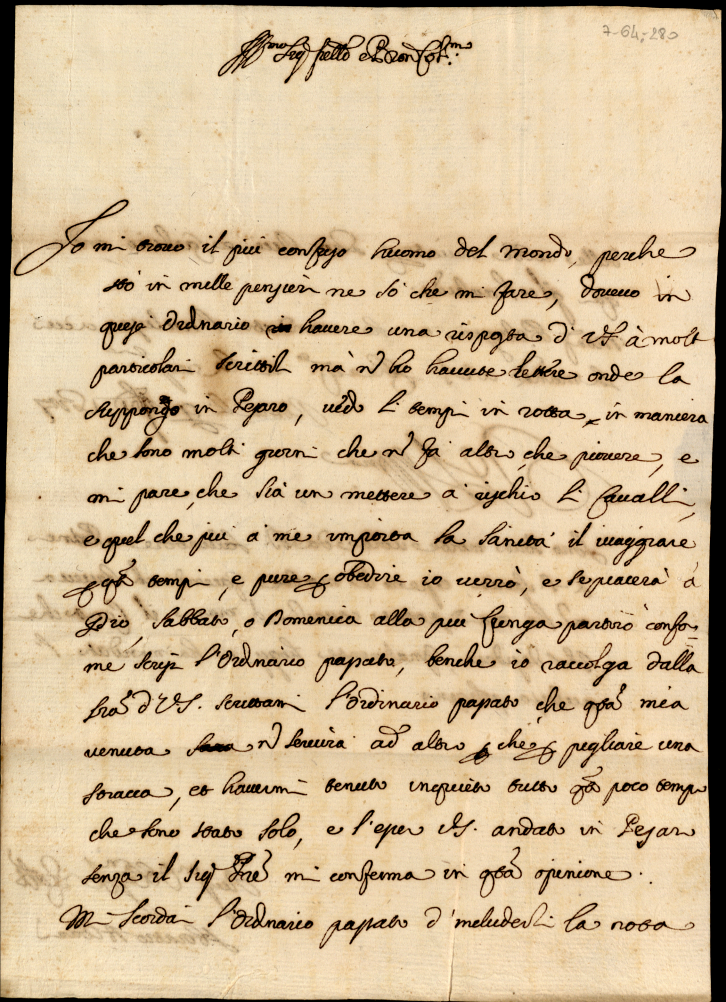 7-64,-280
Ill.mo Sig.r fr͠ello e P͠ron Col.mo
Io mi trovo il più confuso huomo del mondo, perche
stò in mille pensieri ne sò che mi fare, dovevo in
questo Ordinario havere una risposta d' VS. à molti
particolari scrittili mà nõ ho havute lettere onde la
suppongo in Pesaro, vedo li tempi in rotta, in maniera
che sono molti giorni che nõ fà altro, che piovere, e
mi pare, che sià un mettere à rischio li Cavalli,
e quel che più à me importa la sanità il viaggiare
p q͠ti tempi, e pure p obedire io verrò, e se piacerà à
Dio, Sabbato, o Domenica alla più lunga partirò confor-
me scrissi l'Ordinario passato, benche io raccolga dalla
l͠ra d'VS. scrittami l'Ordinario passato, che q͠ta mia
venuta nõ servirà ad altro che p pigliare una
stracca, et havermi tenuto inquieto tutto q͠to poco tempo
che sono stato solo, e l'esser VS. andato in Pesaro
senza il Sig.r P͠re mi conferma in q͠ta opinione.
Mi scordai l'Ordinario passato d'includerli la nota